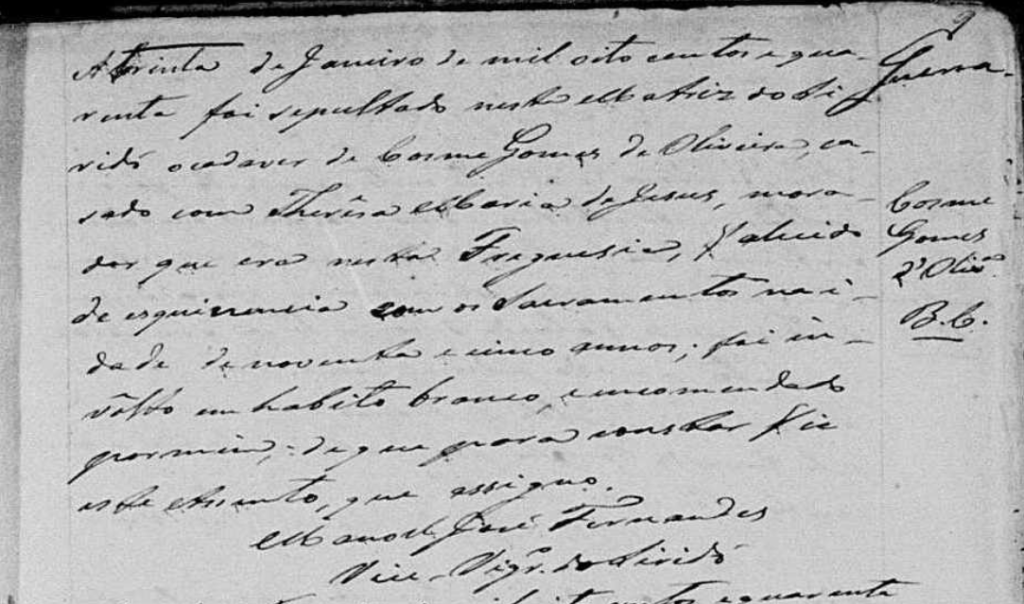 9
Guerra.
A trinta de Janeiro de mil oito centos e qua-
renta foi sepultado nesta Matriz do Si
ridó o cadaver de Cosme Gomes de Oliveira, ca-
sado com Therêsa Maria de Jesus, mora-
dor que era nesta Freguesia, falecido
de esquinencia com os Sacramentos na i-
dade de noventa e cinco annos; foi in-
vôlto em habito branco, encomendado
por mim; de que para constar fiz
este Assento, que assigno.
Manoel José Fernandes
Vice-Vigr.º do Siridó
Cosme
Gomes
d'Olivª
B.C.
mil oito centos e quarenta